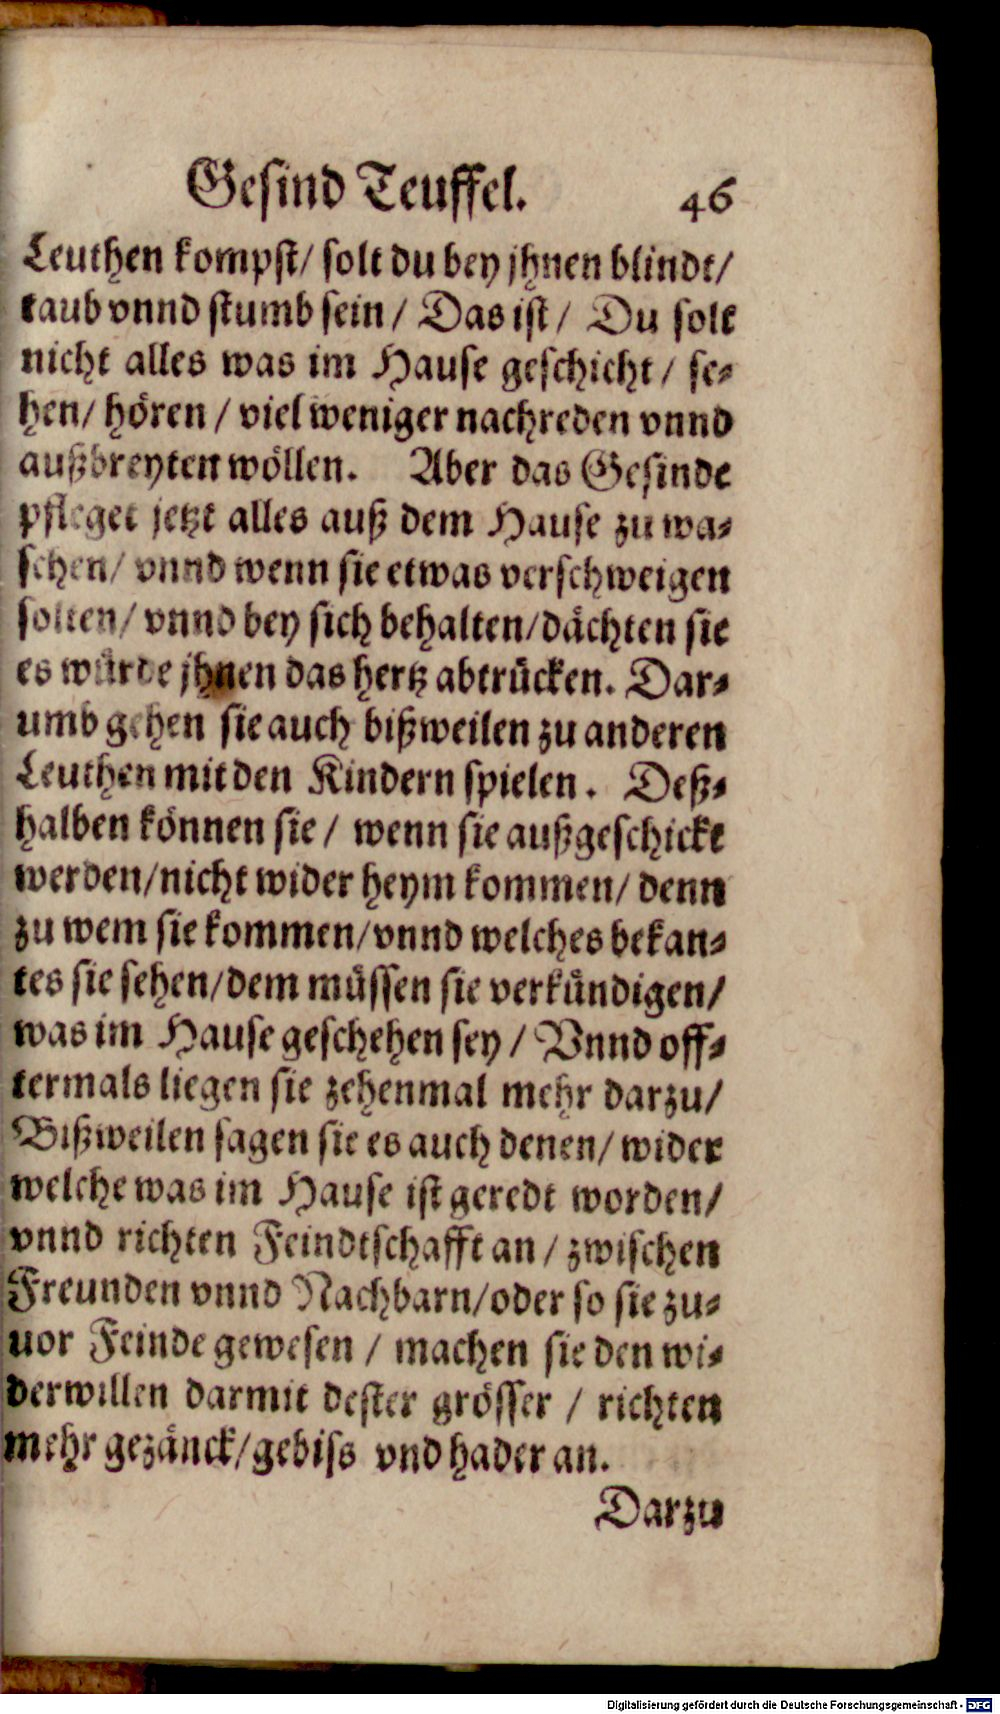 Gesind Teuffel. 46
Leuthen kompst/ solt du bey jhnen blindt/
taub vnnd stumb sein/ Das ist/ Du solt
nicht alles was im Hause geschicht/ se-
hen/ hören/ viel weniger nachreden vnnd
außbreyten wöllen. Aber das Gesinde
pfleget jetzt alles auß dem Hause zu wa-
schen/ vnnd wenn sie etwas verschweigen
solten/ vnnd bey sich behalten/ dächten sie
es würde jhnen das hertz abtrücken. Dar-
umb gehen sie auch bißweilen zu anderen
Leuthen mit den Kindern spielen. Deß-
halben können sie/ wenn sie außgeschickt
werden/ nicht wider heym kommen/ denn
zu wem sie kommen/ vnnd welches bekan-
tes sie sehen/ dem müssen sie verkündigen/
was im Hause geschehen sey/ Vnnd off-
termals liegen sie zehenmal mehr darzu/
Bißweilen sagen sie es auch denen/ wider
welche was im Hause ist geredt worden/
vnnd richten Feindtschafft an/ zwischen
Freunden vnnd Nachbarn/ oder so sie zu-
uor Feinde gewesen/ machen sie den wi-
derwillen darmit dester grösser/ richten
mehr gezänck/ gebiss vnd hader an.
Darzu
Digitalisierung gefördert durch die Deutsche Forschungsgemeinschaft - DFG